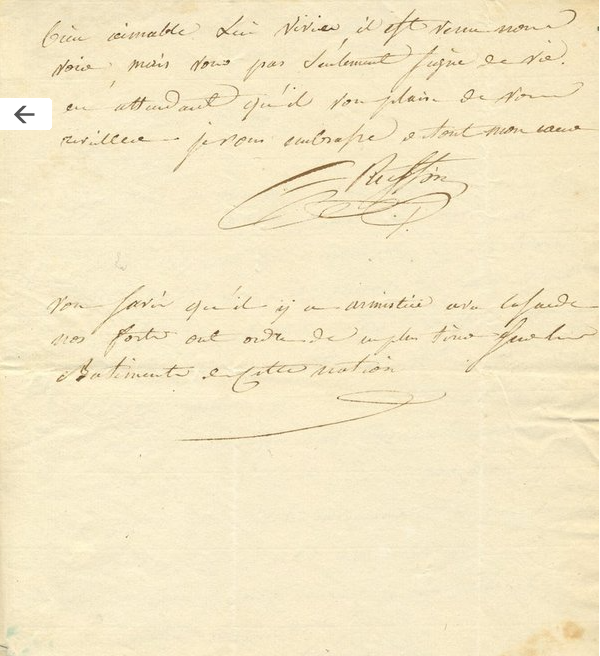 bien aimable Lui Vivier, il est venu nous
voir, mais vous pas seulement signe de vie.
en attendant qu'il vous plaise de vous
eveiller je vous embrasse de tout mon cœur
Ruffin
vous savés qu'il y a armistice avec la suede
nos forts ont ordre de ne plus tirer sur les
Batiments de cette nation